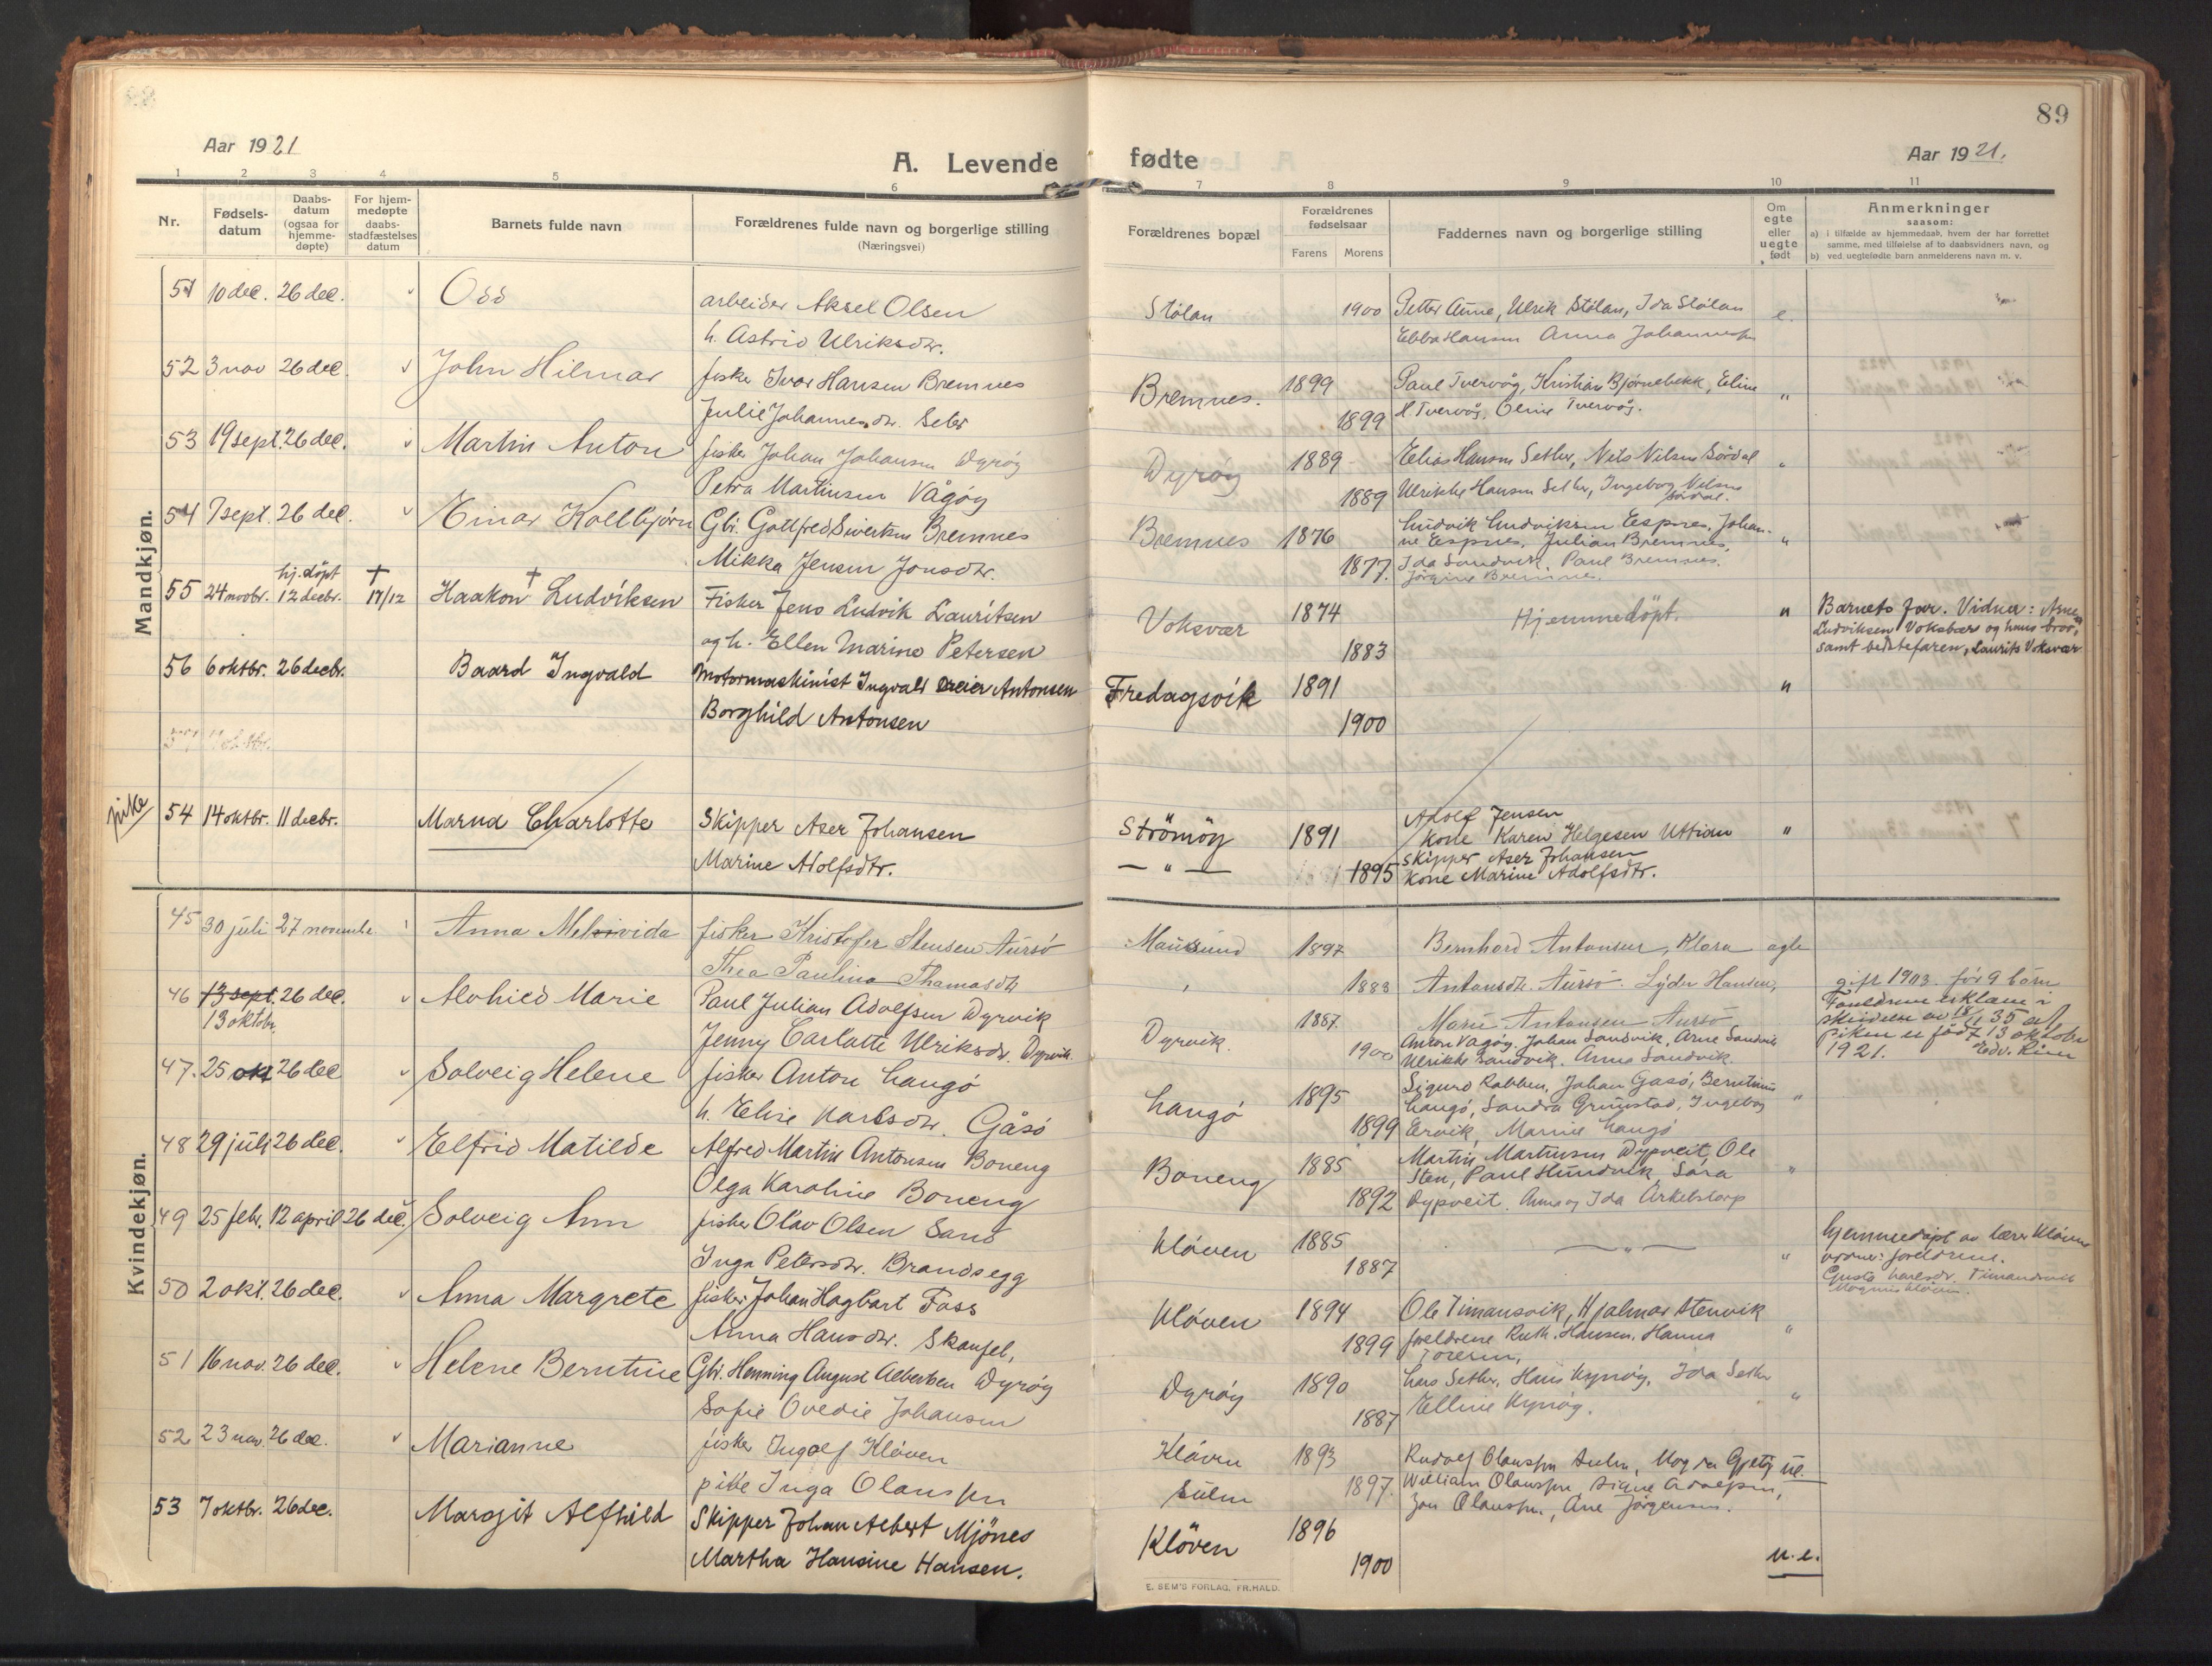 89
Aar 1921
A. Levende fødte
Aar 1921.
1 2 3 4 5 6 7 8 9 10 11
Nr.
Fødsels-
datum
Daabs-
datum
(ogsaa for
hjemme-
døpte)
For hjem-
medøpte
daabs-
stadfæstelses
datum
Barnets fulde navn
Forældrenes fulde navn og borgerlige stilling
(Næringsvei)
Forældrenes bopæl
Forældrenes
fødselsaar
Farens Morens
Faddernes navn og borgerlige stilling
Om
egte
eller
uegte
født
Anmerkninger
saasom:
a) i tilfælde av hjemmedaab, hvem der har forrettet
samme, med tilføielse af to daabsvidners navn, og
b) ved uegtefødte barn anmelderens navn m. v.
Mandkjøn.
51 10 dec. 26 dec. Odd arbeider Aksel Olsen Stølan 1900 Petter Aune, Ulrik Stølan, Ida Stølan e.
h. Astrid Ulriksdr. Ebba Hansen Anna
52 3 nov 26 dec. John Hilmar fisker Ivar Hansen Bremnes Bremnes. 1899 Paul Tvervåg, Kristian Bjørnebekk, Eline "
Julie Johannesdr. Seter 1899 H. Tvervåg, Oline Tvervåg.
53 19 sept. 26 dec. Martin Anton fisker Johan Johansen Dyrøy Dyrøy 1889 Elias Hansen Sether, Nils Nilsen Sördal "
Petra Martinsen Vågøy 1889 Ulrikke Hansen Sether, Ingeborg Nilsen
Sördal.
54 7 sept. 26 dec. Einar Kolbjørn Gbr. Gottfred Sivertsen Bremnes Bremnes 1876 Ludvik Ludviksen Espnes, Johan-
ne Espnes, Julian Bremnes, "
Mikka Jensen Jonsdr. 1877. Ida Sandvik, Paul Bremnes.
Jørgine Bremnes.
55 24 novbr. hj. döpt 12 decbr. † 17/12 Haakon † Ludviksen Fisker Jens Ludvik Lauritsen Voksvær 1874 Hjemmedöpt. " Barnets far. Vidner: Arne
og h. Ellen Marine Petersen 1883 Ludviksen Voksvær og hans bror,
samt bedstefaren, Laurits Voksvær
56 6 oktbr. 26 decbr. Baard Ingvald Motormaskinist Ingvald Dreier Antonsen Fredagsvik 1891 "
Borghild Antonsen 1900
57 7 oktbr.
pike 54 14 oktbr. 11 decbr. Marna Charlotte Skipper Aser Johansen Strömöy 1891 Adolf Jensen
kone Karen Helgesen Uttian "
Marine Adolfsdtr. — " — 1895 Skipper Aser Johansen
kone Marine Adolfsdtr.
Kvindekjøn.
45 30 juli 27 novembr. Anna Melvida fisker Kristofer Stensen Aursö Mausund 1897 Bernhard Antonsen, Klara egte
Thea Paulina Thomasdtr " 1888 Antonsdtr. Aursö. Lyder Hansen, gift 1903. før 9 börn
46 13 sept. 26 dec. Alvhild Marie Paul Julian Adolfsen Dyrvik Dyrvik. 1887. Marie Antonsen Aursö Foreldrene erklærer i
13 oktbr. skrivelse av 18/1 35 at
Jenny Carlotte Ulriksdr. Dyrvik 1900 Anton Vagøy, Johan Sandvik, Arne Sandvik piken er født 13 oktober
Ulrikke Sandvik. Anna Sandvik. 1921.
47. 25 okt 26 dec Solveig Helene fisker Anton Langö Langö 1895 Sigurd Rabben, Johan Gåsö, Berntine "
h. Elise Karlsdr. Gåsö 1899 Langö, Sandra Grunstad, Ingeborg
Ervik, Marie Langö
48 29 juli 26 dec. Elfrid Matilde Alfred Martin Antonsen Boneng Boneng 1885 Martin Martinsen Dypveit, Ole "
Olga Karoline Boneng 1892 Sten, Paul Hundvik, Sara
Dypveit. Anna og Ida
49 25 febr. 12 april 26 dec. Solveig Ann fisker Olav Olsen Sand Klöven 1885 — " — " hjemmedøpt av lærer Klöven
Inga Petersdr. Brandsegg 1887 vidner: foreldrene.
50 2 okt. 26 dec. Anna Margrete fisker Johan Hagbart Foss Klöven 1894 Ole Timansvik, Hjalmar Stenvik
Anna Hansdr. Skaufel, 1899 foreldrene Ruth Hansen, Hanna "
51 16 nov. 26 dec. Helene Berntine Gbr. Henning August Albertsen Dyrøy Dyrøy 1890 Lars Sether, Hans Kynøy, Ida Sether "
Sofie Ovedie Johansen 1887 Elline Kynøy.
52 23 nov. 26 dec. Marianne fisker Ingolf Klöven Klöven 1893 Rudolf Olaussen Sulen, Magda Gjetøy ue.
pike Inga Olaussen Sulen 1897. William Olaussen, Signe Adolfsen,
Jon Olaussen, Ane Jörgensen.
53 7 oktbr. 26 dec. Margit Alfhild Skipper Johan Albert Mjönes Klöven 1896
Martha Hansine Hansen. 1900 u.e.
E. SEM'S FORLAG, FR.HALD.